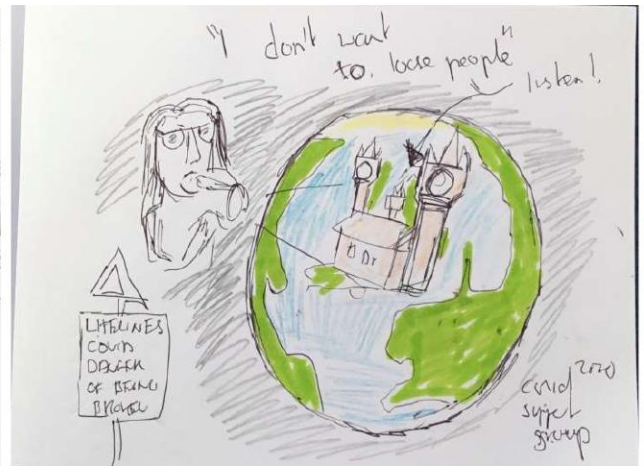 "I don't want
to. loose people"
listen!
LIFELINES
COVID
DANGER
OF BEING
BROKEN
covid 2020
group